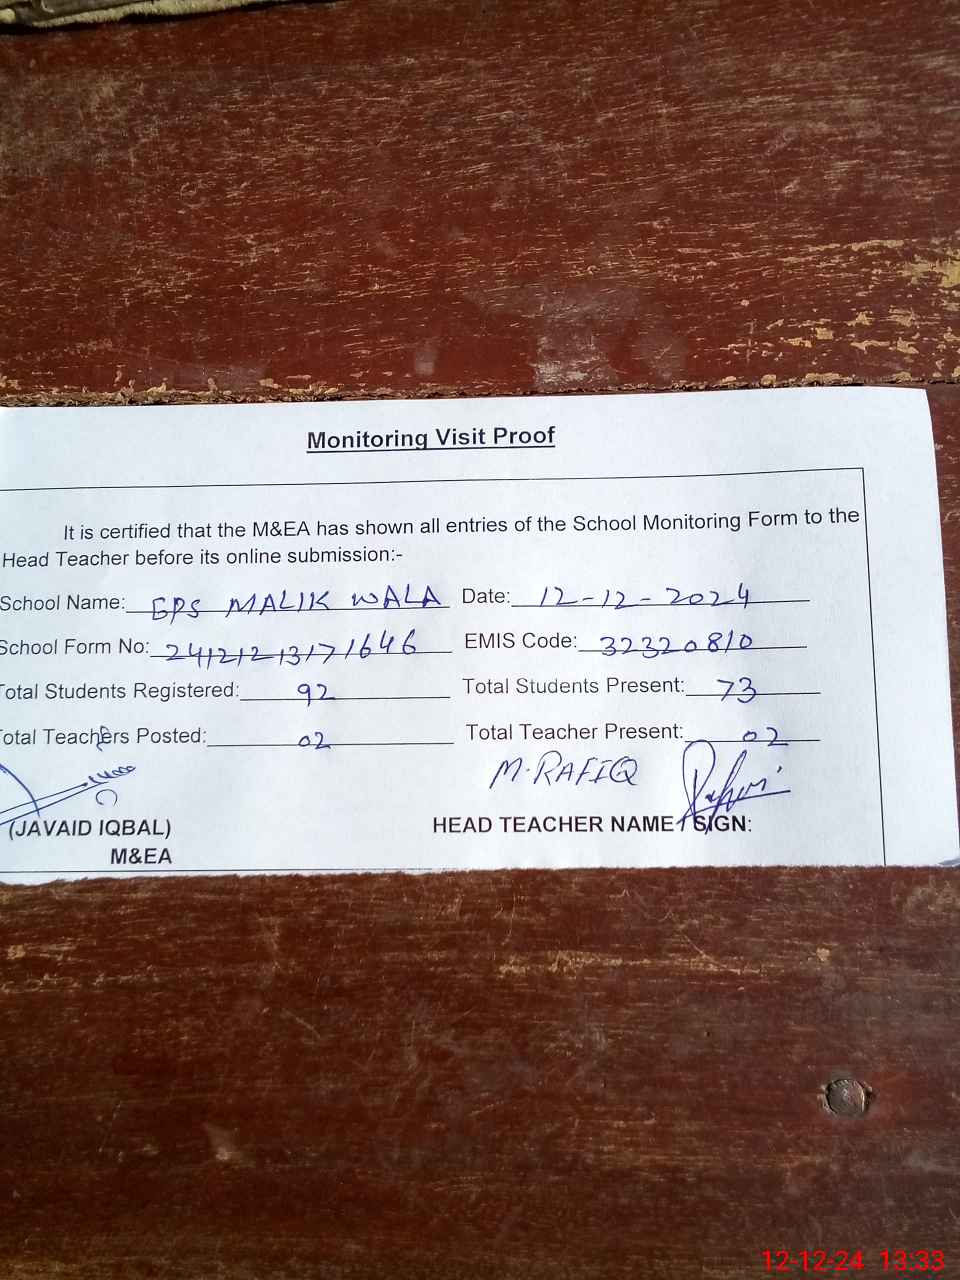 Monitoring Visit Proof
It is certified that the M&EA has shown all entries of the School Monitoring Form to the
Head Teacher before its online submission:-
School Name: GPS MALIK WALA Date: 12-12-2024
School Form No: EMIS Code: 32320810
Total Students Registered: 92 Total Students Present: 73
Total Teachers Posted: 02 Total Teacher Present: 02
M.RAFIQ
(JAVAID IQBAL) HEAD TEACHER NAME / SIGN:
M&EA
12-12-24 13:33